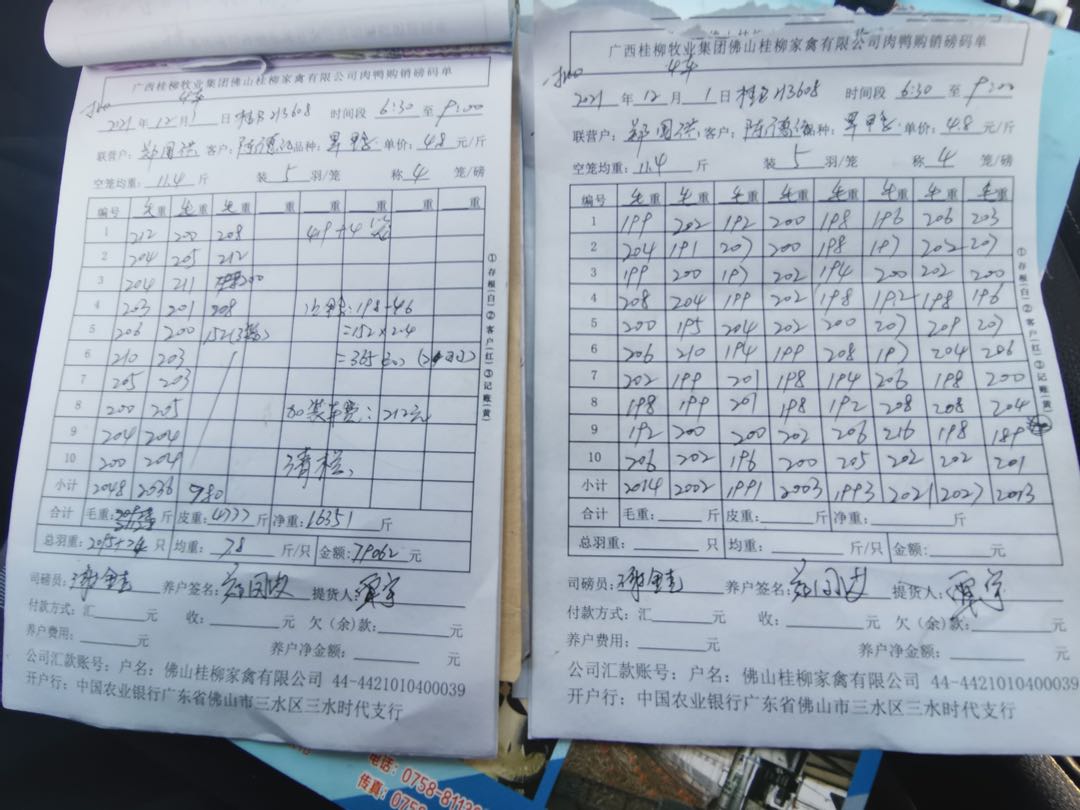 广西桂柳牧业集团佛山桂柳家禽有限公司肉鸭购销磅码单
4车
2021年12月1日 时间段 6:30 至 9:00
联营户: 客户: 品种: 单价: 4.8 元/斤
空笼均重: 11.4 斤 装 5 羽/笼 称 4 笼/磅
编号 毛重 毛重 毛重 重 重 重 重 重
1 212 200 208 419+4笼
2 204 205 212
3 204 211 200
4 203 201 208 198-46
5 206 200 152 =152×2.4
6 210 203 =365
7 205 203
8 200 205 加装车费: 212元
9 204 204
10 200 204
小计 2048 2036 980
合计 毛重: 斤 皮重: 4777 斤 净重: 16351 斤
总羽重: 只 均重: 78 斤/只 金额: 79062 元
司磅员: 养户签名: 提货人:
付款方式: 汇 元 收: 元 欠(余)款: 元
养户费用: 元 养户净金额: 元
公司汇款账号: 户名: 佛山桂柳家禽有限公司 44-4421010400039
开户行: 中国农业银行广东省佛山市三水区三水时代支行
①存根(白)②客户(红)③记账(黄)
广西桂柳牧业集团佛山桂柳家禽有限公司肉鸭购销磅码单
4车
2021年12月1日 时间段 6:30 至 9:00
联营户: 客户: 品种: 单价: 4.8 元/斤
空笼均重: 11.4 斤 装 5 羽/笼 称 4 笼/磅
编号 毛重 毛重 毛重 毛重 毛重 毛重 毛重 毛重
1 199 202 192 200 198 196 206 203
2 204 191 207 200 198 197 202 207
3 199 200 197 202 194 200 202 200
4 208 204 199 202 198 192 198 196
5 200 195 204 202 200 207 209 207
6 206 210 194 199 208 197 204 206
7 202 199 201 198 194 206 198 200
8 198 199 201 198 192 208 208 204
9 192 200 200 202 206 216 198 189
10 206 202 196 200 205 202 202 201
小计 2014 2002 1991 2003 1993 2021 2027 2013
合计 毛重: 斤 皮重: 斤 净重: 斤
总羽重: 只 均重: 斤/只 金额: 元
司磅员: 养户签名: 提货人:
付款方式: 汇 元 收: 元 欠(余)款: 元
养户费用: 元 养户净金额: 元
公司汇款账号: 户名: 佛山桂柳家禽有限公司 44-4421010400039
开户行: 中国农业银行广东省佛山市三水区三水时代支行
①存根(白)②客户(红)③记账(黄)
电话: 0758-8113
传真: 0758